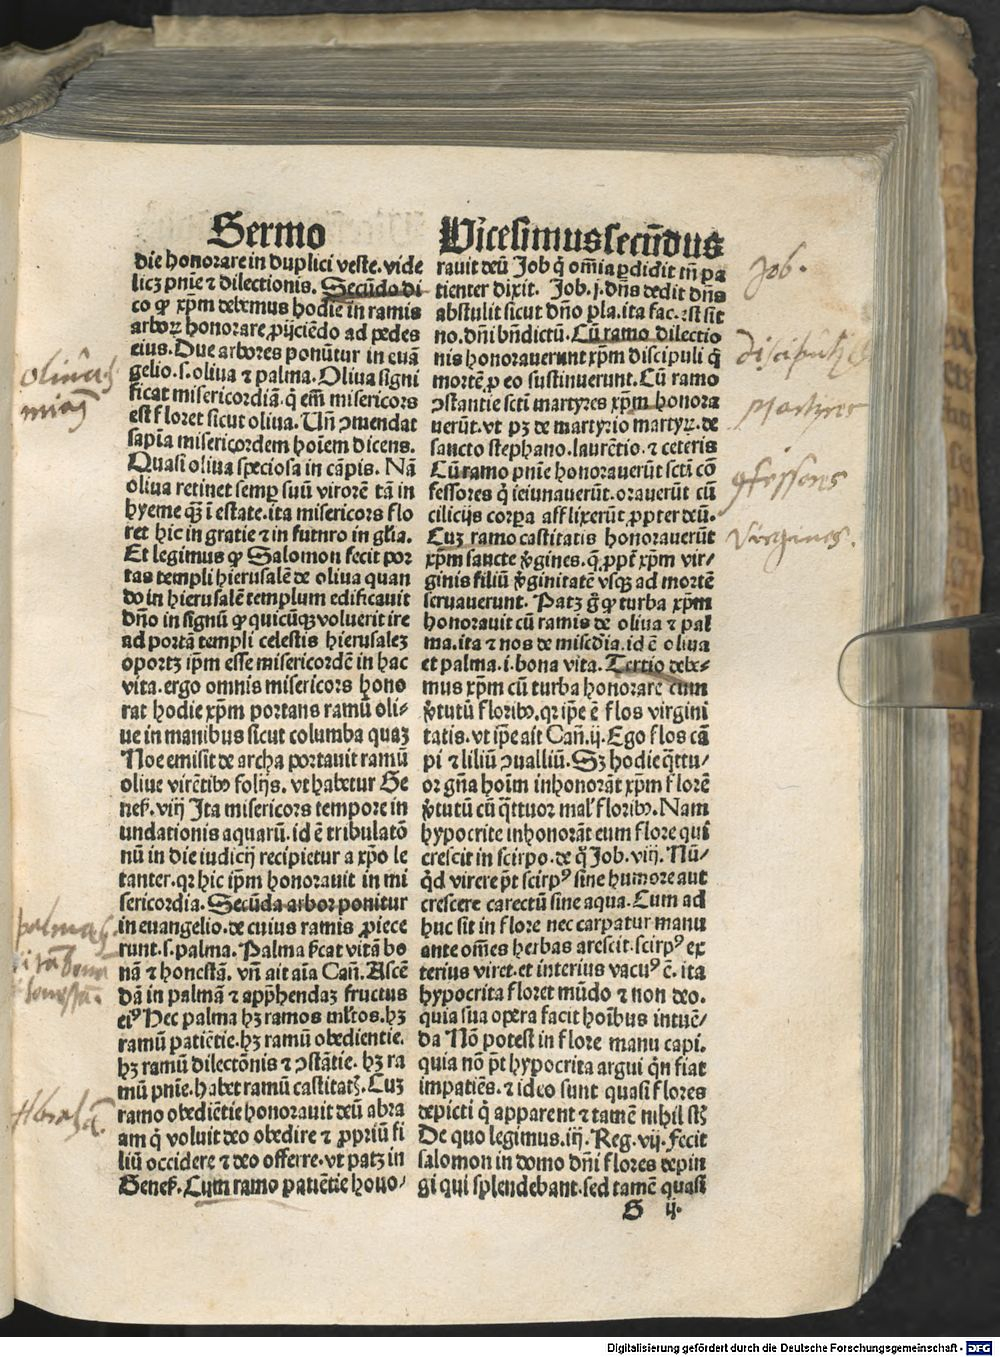 Sermo
die honorare in duplici veste. vide
licꝫ pnīe ⁊ dilectionis. Secūdo di
co ꝙ xp̄m debemus hodie in ramis
arboꝝ honorare ꝓijciēdo ad pedes
eius. Due arbores ponūtur in euā
gelio .s. oliua ⁊ palma. Oliua signi
ficat misericordiā. q̄ em̄ misericors
est floret sicut oliua. Un̄ ꝯmendat
sapīa misericordem hoīem dicens.
Quasi oliua speciosa in cāpis. Nā
oliua retinet semꝑ suū virorē tā in
hyeme qꝫ ī estate. ita misericors flo
ret hic in gratie ⁊ in futuro in gl̄ia.
Et legimus ꝙ Salomon fecit por
tas templi hierusalē de oliua quan
do in hierusalē templum edificauit
dn̄o in signū ꝙ quicūqꝫ voluerit ire
ad portā templi celestis hierusalꝫ
oportꝫ ip̄m esse misericordē in hac
vita. ergo omnis misericors hono
rat hodie xp̄m portans ramū oli⸗
ue in manibus sicut columba quaꝫ
Noe emisit de archa portauit ramū
oliue virētibꝰ folijs. vt habetur Ge
neß. viij Ita misericors tempore in
undationis aquarū. id ē tribulatō
nū in die iudicij recipietur a xp̄o le
tanter. qꝛ hic ip̄m honorauit in mi
sericordia. Secūda arbor ponitur
in euangelio. de cuius ramis ꝓiece
runt .s. palma. Palma ßcat vitā bo
nā ⁊ honestā. vn̄ ait aīa Can̄. Ascē
dā in palmā ⁊ app̄hendaꝫ fructus
eiꝰ Hec palma hꝫ ramos ml̄tos. hꝫ
ramū patiētie. hꝫ ramū obedientie.
hꝫ ramū dilectōnis ⁊ ꝯstātie. hꝫ ra
mū pnīe. habet ramū castitatꝭ. Cuꝫ
ramo obediētie honorauit deū abra
am q̇ voluit deo obedire ⁊ ꝓpriū fi
liū occidere ⁊ deo offerre. vt patꝫ in
Geneß. Cum ramo patiētie hono⸗
Vicesimussecūdus
rauit deū Job q̇ om̄ia ꝑdidit tn̄ pa
tienter dixit. Job. j. dn̄s dedit dn̄s
abstulit sicut dn̄o pla. ita fac. est sit
no. dn̄i bn̄dictū. Cū ramo dilectio
nis honorauerunt xp̄m discipuli q̇
mortē ꝓ eo sustinuerunt. Cū ramo
ꝯstantie scti martyres xp̄m honora
uerūt. vt pꝫ de martyrio martyꝝ. de
sancto stephano. laurētio. ⁊ ceteris
Cū ramo pnīe honorauerūt scti cō
fessores q̇ ieiunauerūt. orauerūt cū
cilicijs corꝑa afflixerūt ꝓpter deū.
Cuꝫ ramo castitatis honorauerūt
xp̄m sancte v̄gines. q̄ ꝓpt̄ xp̄m vir⸗
ginis filiū v̄ginitatē vsqꝫ ad mortē
seruauerunt. Patꝫ g̊ ꝙ turba xp̄m
honorauit cū ramis de oliua ⁊ pal
ma. ita ⁊ nos de miscdia. id ē oliua
et palma .i. bona vita. Tertio debe⸗
mus xp̄m cū turba honorare cum
v̄tutū floribꝰ. qꝛ ip̄e ē flos virgini
tatis. vt ip̄e ait Can̄. ij. Ego flos cā
pi ⁊ liliū ꝯualliū. Sꝫ hodie q̄ttu⸗
or gn̄a hoīm inhonorāt xp̄m florē
v̄tutū cū q̄ttuor mal̓ floribꝰ. Nam
hypocrite inhonorāt eum flore qui
crescit in scirpo. de q̊ Job. viij. Nū⸗
q̇d virere p̄t scirpꝰ sine humore aut
crescere carectū sine aqua. Cum ad
huc sit in flore nec carpatur manu
ante om̄es herbas arescit. scirpꝰ ex
terius viret. et interius vacuꝰ ē. ita
hypocrita floret mūdo ⁊ non deo.
quia sua opera facit hoībus intuē⸗
da Nō potest in flore manu capi.
quia nō p̄t hypocrita argui q̇n fiat
impatiēs. ⁊ ideo sunt quasi flores
depicti q̇ apparent ⁊ tamē nihil st̄ꝫ
De quo legimus. iij. Reg. vij. Fecit
salomon in domo dn̄i flores depin
gi qui splendebant. sed tamē quasi
S ij.
oliua .s.
mi͞a
palma .s.
Abrahā.
Job.
discipuli
Martyres
ꝯfessores
Virgines.
Digitalisierung gefördert durch die Deutsche Forschungsgemeinschaft - DFG